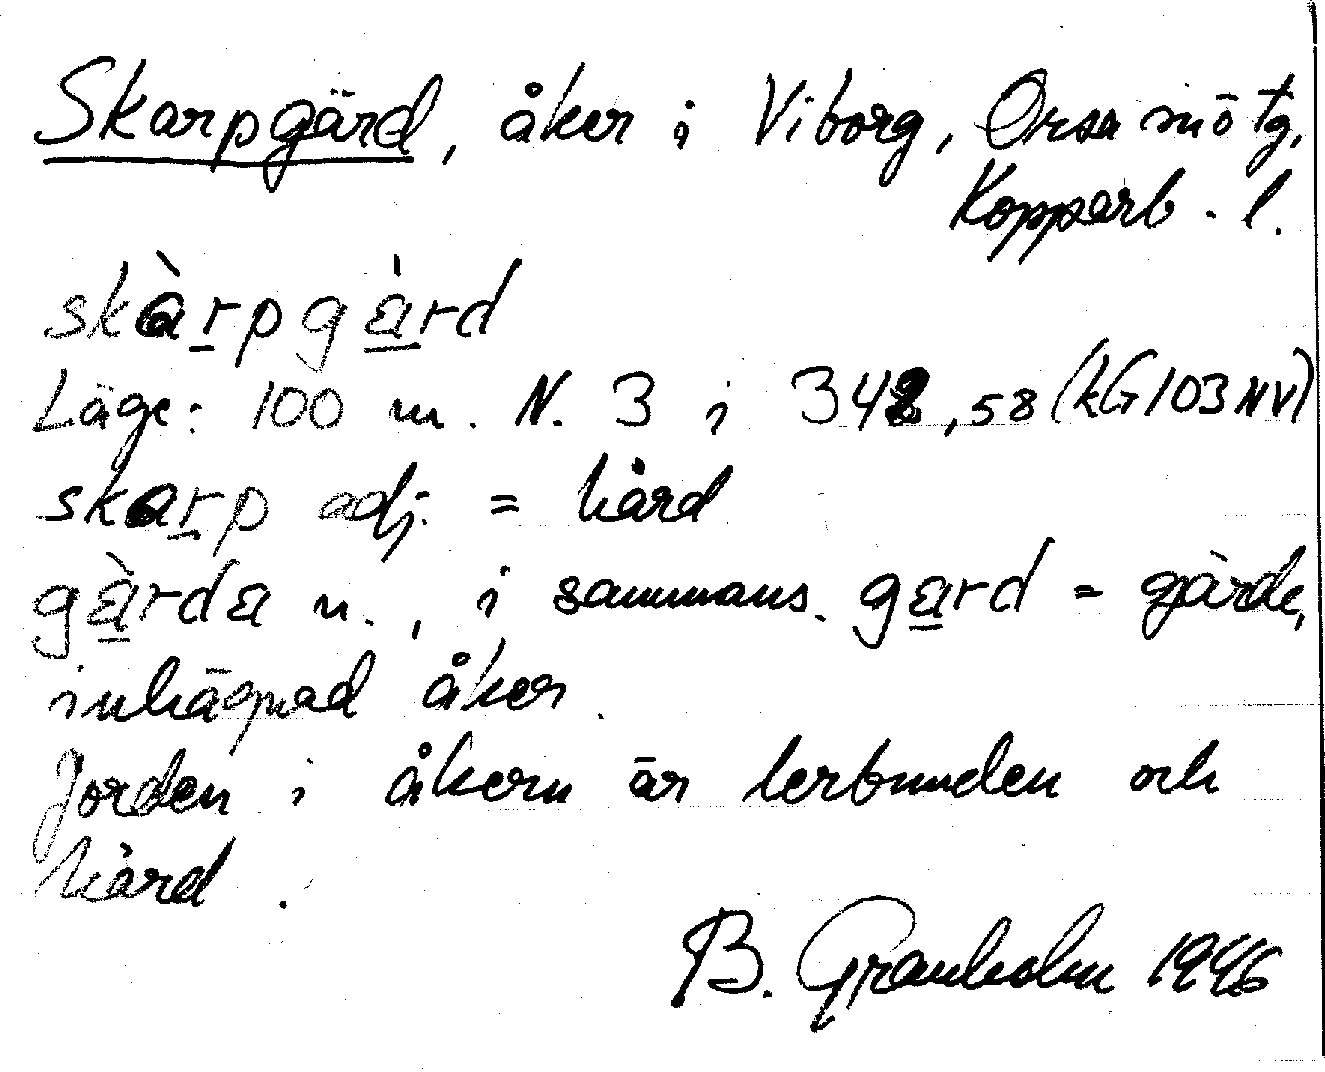 Skarpgärd, åker i Viborg, Orsa mötg,
Kopparb. l.
skàrpgàrd
Läge: 100 m. N. 3 i 342,58 (kG 103 NV)
skarp adj. = hård
gàrda n., i sammans. gard = gärde,
inhägnad åker.
Jorden i åkern är lerbunden och
hård.
B. Granholm 1946